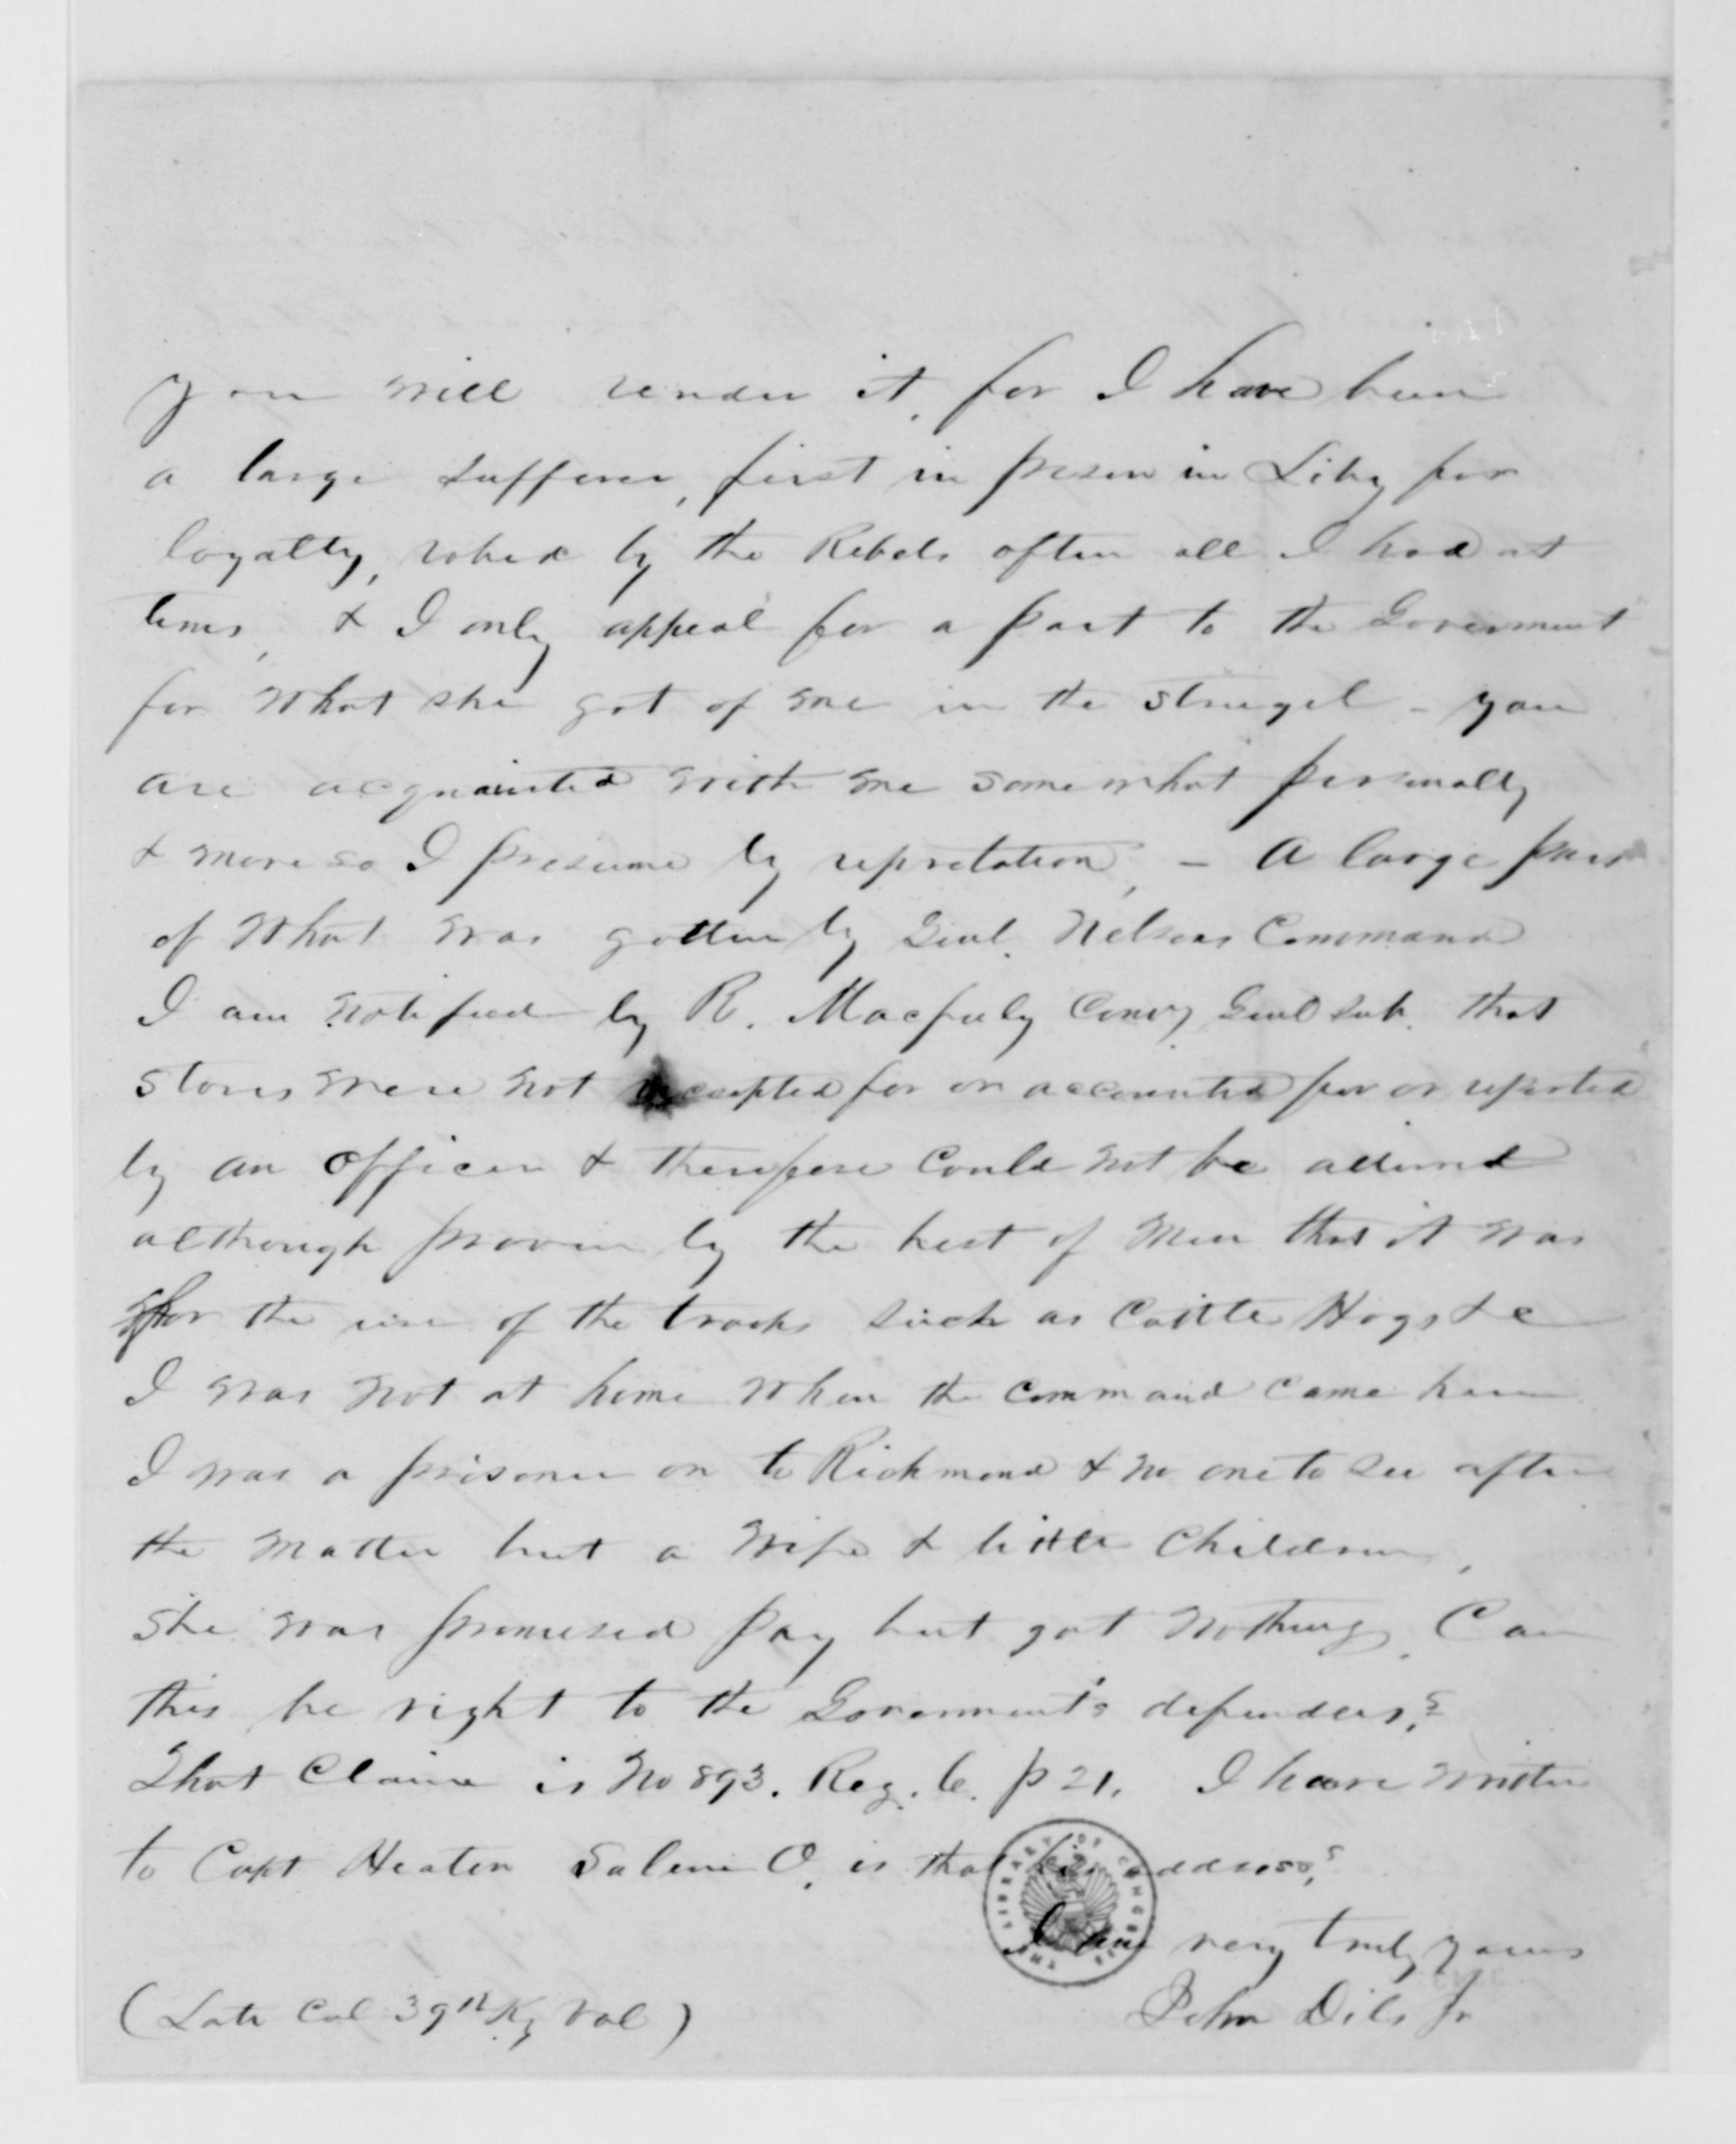 you will render it, for I have been
a large sufferer, first in prison in Liby for
loyalty, robed by the Rebels often all I had at
times, & I only appeal for a part to the Government
for what she got of me in the strugel - you
are acquainted with me somewhat personally
& more so I presume by reputation, - A large part
of what was gotten by Genl. Nelsons Command
I am notified by R. Macfeely Comy Genl Sub. that
stores were not receipted for or accounted for or reported
by an officer & therefore could not be allowed
although proven by the best of men that it was
for the use of the troops such as Cattle Hogs &c
I was not at home when the command came here
I was a prisoner on to Richmond & no one to see after
the matter but a wife & little Children,
she was promised pay but got nothing. Can
this be right to the Government's defenders?
That Claim is No 893. Reg. C. p 21. I have written
to Capt Heaton Salem O, is that his address?
I am very truly yours
(Late Col 39th Ky Vol) John Dils Jr
THE LIBRARY OF CONGRESS